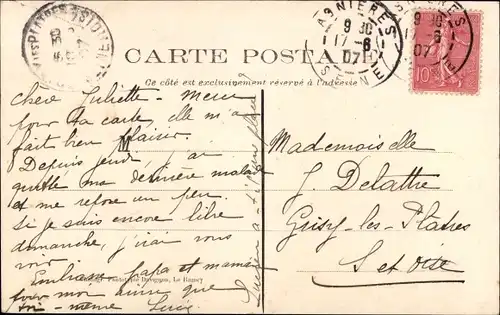 ASNIERES
9 30
17 -6
07
SEINE
ASNIERES
9 30
17 -6
07
10
CARTE POSTALE
Ce côté est exclusivement réservé à l'adresse
Chère Juliette - Merci
pour ta carte, elle m'a
fait bien plaisir.
Depuis jeudi, j'ai
quitté ma dernière malade
et me repose un peu.
Si je suis encore libre
dimanche, j'irai vous
voir.
Embrasse papa et maman
pour moi ainsi que
toi-même
Mademoiselle
J. Delattre
Grisy-les-Plâtres
S et Oise
Le Raincy